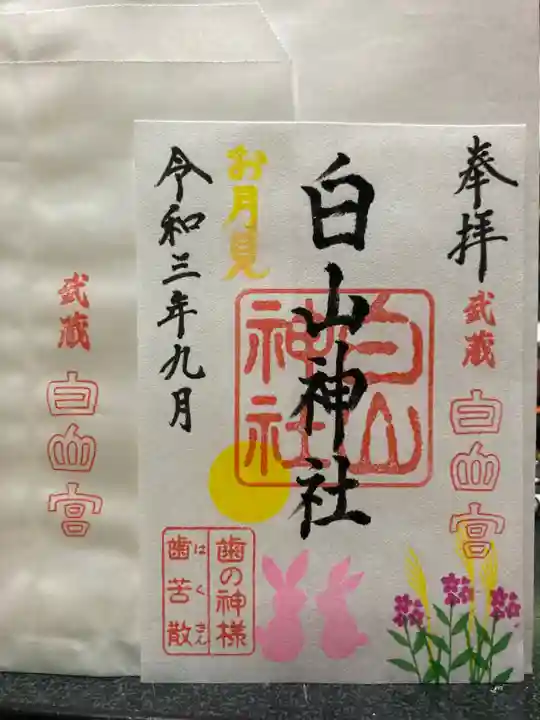 奉拝
武蔵
白山宮
白山神社
白山
神社
お月見
令和三年九月
歯の神様
はくさん
歯苦散
武蔵
白山宮